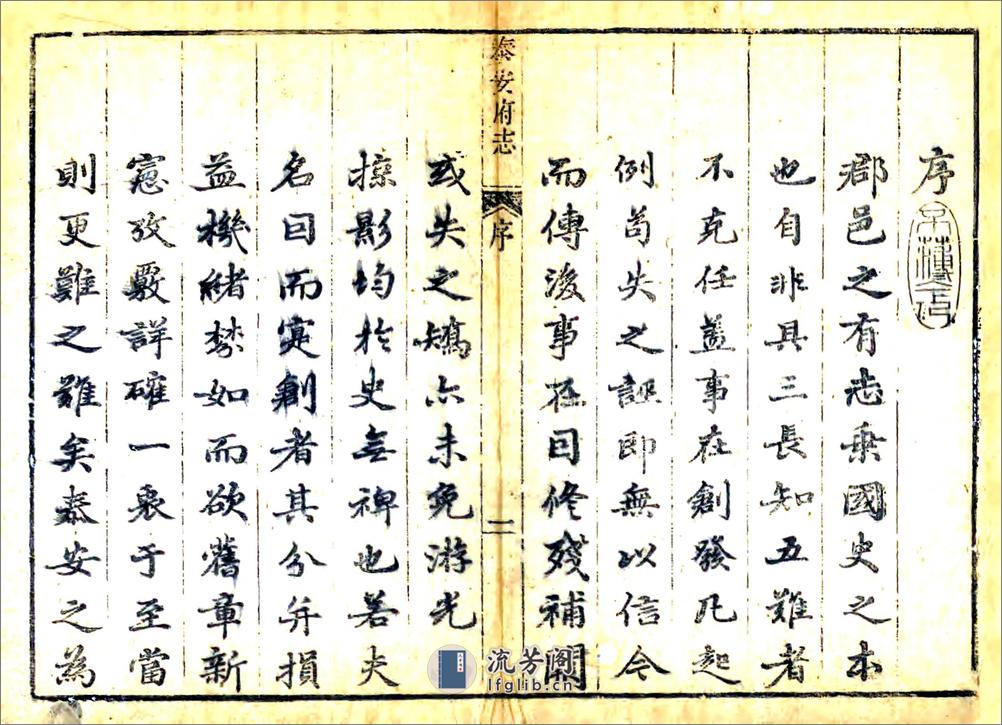 序
郡邑之有志乗國史之本
也自非具三長知五難者
不克任蓋事在創發凡起
例苟失之誣即無以信今
而傳後事在因修殘補闕
泰安府志 序 一
或失之矯亦未免游光
掠影均於史無裨也若夫
名因而實創者其分并損
益機緒棼如而欲舊章新
憲攷覈詳確一衷于至當
則更難之難矣泰安之為
流芳阁
lfglib.cn